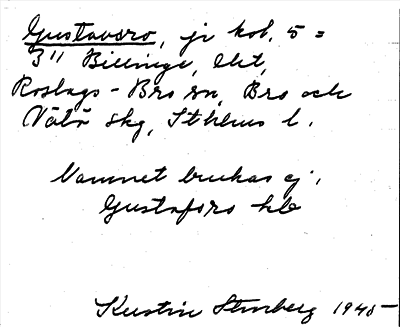 Gustavsro, jr kol, 5 =
3" Billinge, Ekt,
Roslags-Bro sn, Bro och
Vätö skg, Sthlms l.
Namnet brukas ej.
Gustafsro hb
Kerstin Stenberg 1945